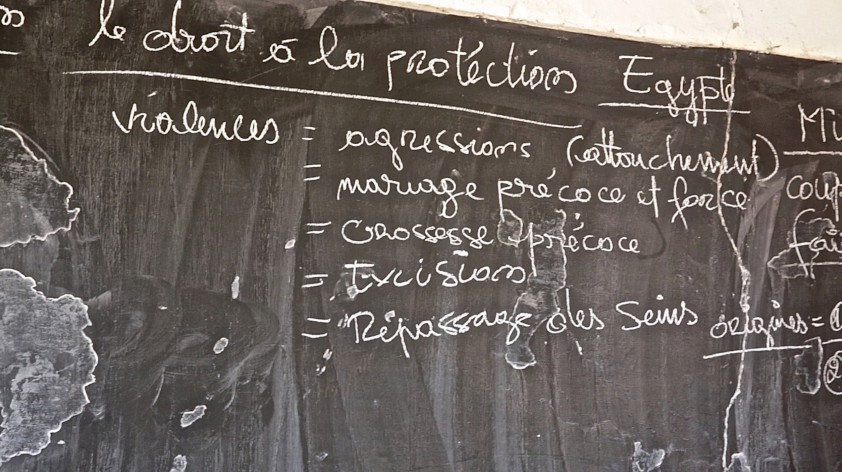 le droit à la protéction Egypte
violences = agressions (attouchement)
= mariage précoce et force
= Grossesse précoce
= Excision
= Répassage des Seins
origines =